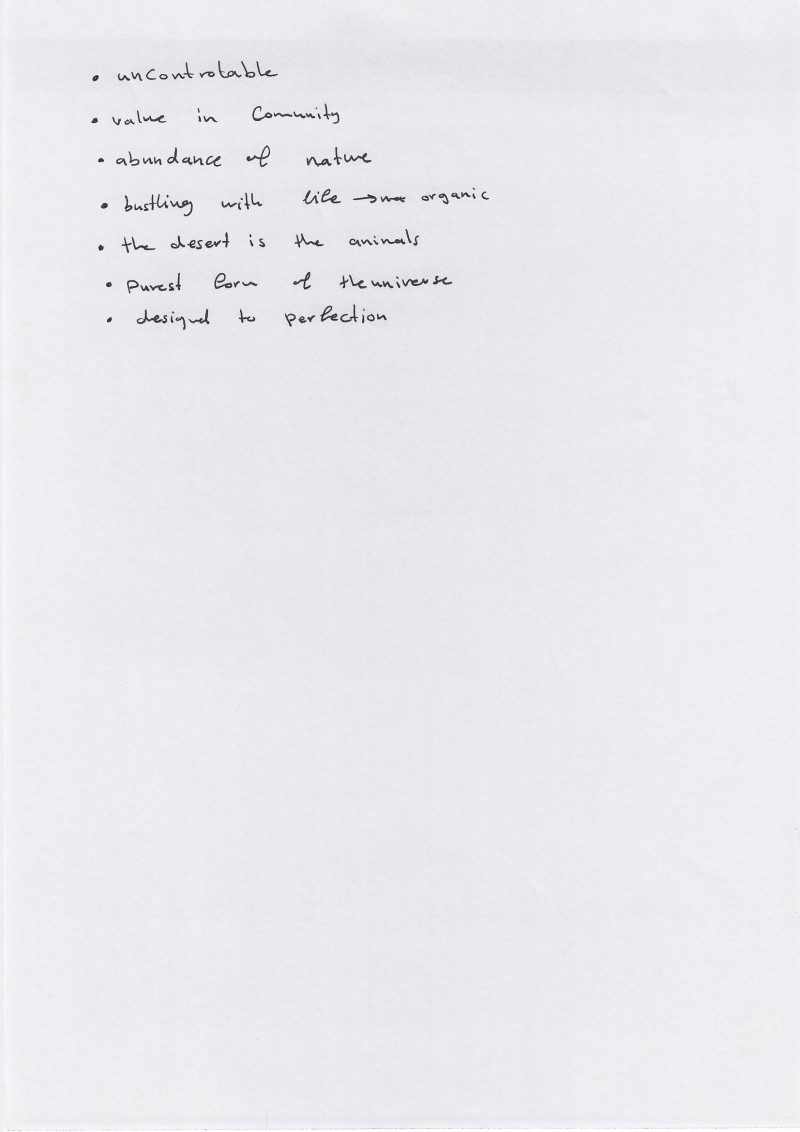 • uncontrolable
• value in Community
• abundance of nature
• bustling with life → organic
• the desert is the animals
• purest form of the universe
• designed to perfection